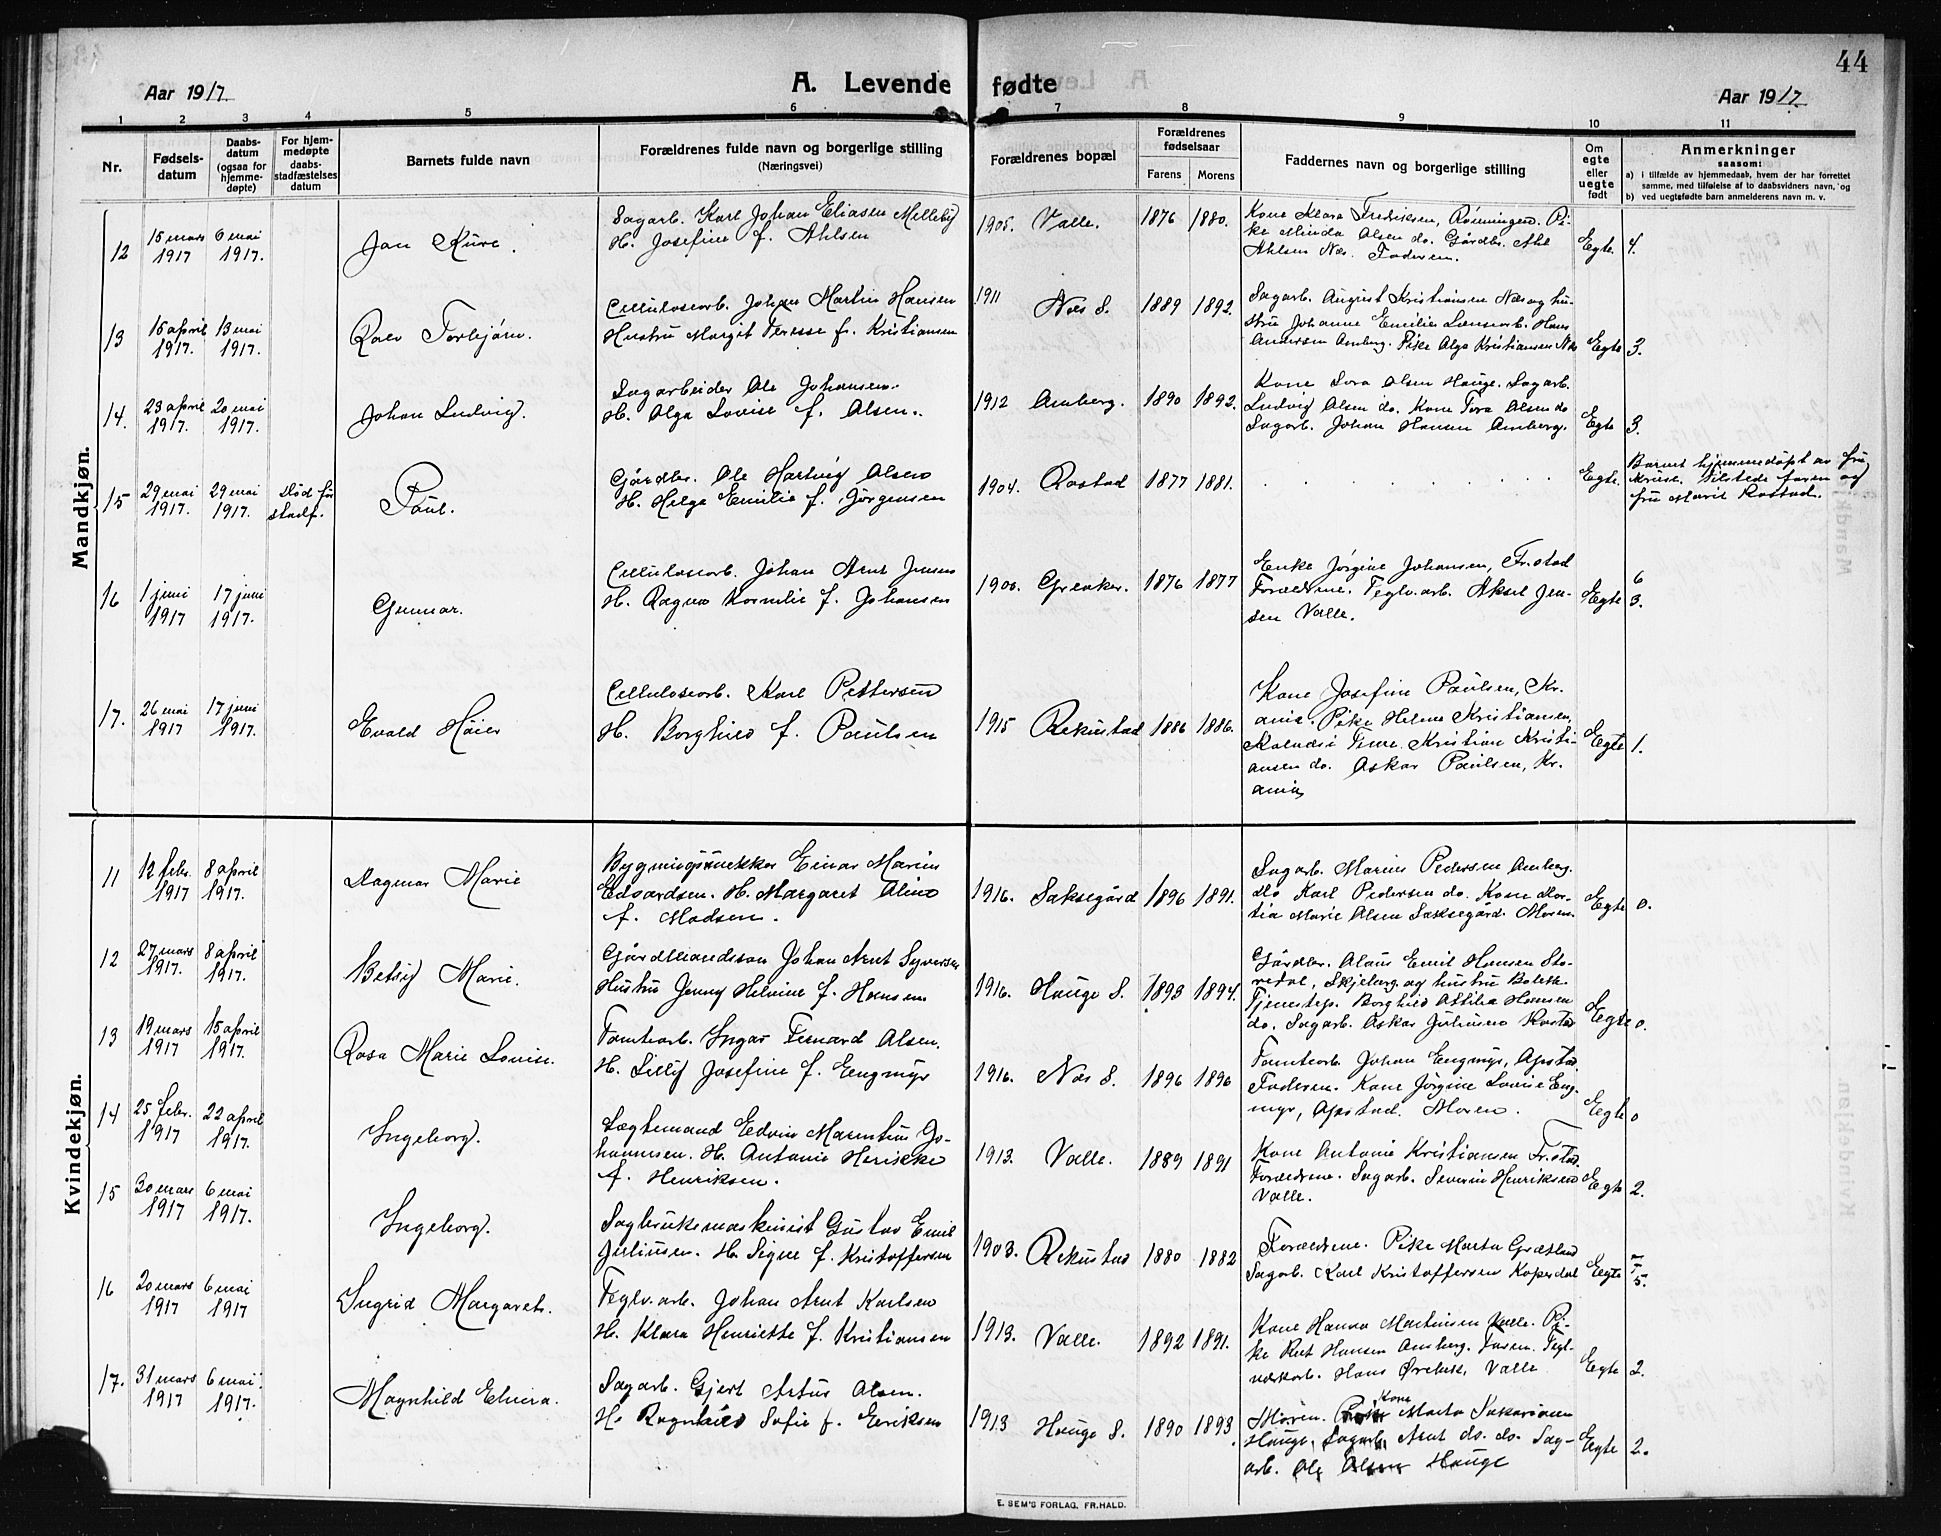 44
Aar 1917
A. Levende fødte
Aar 1917
1 2 3 4 5 6 7 8 9 10 11
Nr.
Fødsels-
datum
Daabs-
datum
(ogsaa for
hjemme-
døpte)
For hjem-
medøpte
daabs-
stadfæstelses
datum
Barnets fulde navn
Forældrenes fulde navn og borgerlige stilling
(Næringsvei)
Forældrenes bopæl
Forældrenes
fødselsaar
Farens Morens
Faddernes navn og borgerlige stilling
Om
egte
eller
uegte
født
Anmerkninger
saasom:
a) i tilfælde av hjemmedaab, hvem der har forrettet
samme, med tilføielse af to daabsvidners navn, og
b) ved uegtefødte barn anmelderens navn m. v.
Mandkjøn.
12
15 mars
1917
6 mai
1917.
Jan Kure.
Sagarb. Karl Johan Eliasen Melleby
H. Josefine f. Ahlsen
1905. Valle. 1876 1880.
Kone Klara Fredriksen, Rønningen. Pi-
ke Minda Olsen do. Gårdbr.
Ahlsen Næs. Faderen.
Egte. 4.
13
15 april
1917.
13 mai
1917.
Rolv Torbjørn.
Cellulosearb. Johan Martin Hansen
Hustru Margit Teresse f. Kristiansen
1911 Næs S. 1889 1892.
Sagarb. August Kristiansen Næs og hu-
stru Johanne Emilie Lensearb. Hans
Andersen Amberg. Pike Olga Kristiansen Næs
Egte 3.
14.
23 april
1917.
20 mai
1917.
Johan Ludvig.
Sagarbeider Ole Johansen.
H. Olga Lovise f. Olsen.
1912 Amberg. 1890 1892.
Kone Olsen Hauge. Sagarb.
Ludvig Olsen do. Kone Tora Olsen do
Sagarb. Johan Hansen Amberg.
Egte 3.
15
29 mai
1917.
29 mai
1917.
død før
stadf.
Paul.
Gårdbr. Ole Hartvig Olsen
H. Helga Emilie f. Jørgensen
1904. Rostad 1877 1881.
Egte.
Barnet hjemmedøpt av fru
Kruse. Tilstede faren og
fru Marit Rostad.
16
1 juni
1917
17 juni
1917.
Gunnar.
Cellulosearb. Johan Arnt Jensen
H. Ragna Kornelie f. Johansen
1900. Greaker. 1876 1877
Enke Jørgine Johansen, Fr.stad
Forældrene. Teglv.arb. Aksel Jen-
sen Valle.
Egte 6
3.
17.
26 mai
1917
17 juni
1917.
Evald Høier
Cellulosearb. Karl Pettersen
H. Borghild f. Paulsen
1915 Rekustad 1886 1886.
Kone Josefine Paulsen, Kr.
ania. Pike Helene Kristiansen,
Kalnæs i Tune. Kristian Kristi-
ansen do. Oskar Paulsen, Kr.
ania
Egte 1.
Kvindekjøn.
11
12 febr.
1917
8 april
1917.
Dagmar Marie
Bygningssnekker Einar Marius
Edvardsen. H. Margaret Aline
f. Madsen.
1916. Saksegård 1896 1891.
Sagarb. Marius Pedersen Amberg.
do Karl Pedersen do. Kone Mar-
tia Marie Olsen Saksegård. Moren.
Egte 0.
12
27 mars
1917.
8 april
1917.
Betsy Marie.
Gårdmandssøn Johan Arnt Syversen
Hustru Jenny Helvine f. Hansen
1916. Hauge S. 1893 1894.
Gårdbr. Olaus Emil Hansen Sto-
redal, Skjeberg og hustru Bolette
Tjenestep. Borghild Attilia Hansen
do. Sagarb. Oskar Juliussen Rostad
Egte 0.
13
19 mars
1917
15 april
1917.
Rosa Marie Lovise.
Tomtearb. Ingar Fernard Olsen.
H. Lilly Josefine f. Engmyr
1916. Næs S. 1896 1896
Tomtearb Johan Engmyr, Opstad
Faderen. Kone Jørgine Lovise Eng-
myr, Opstad. Moren.
Egte 0
14
25 febr.
1917
22 april
1917.
Ingeborg.
Lægtemand Edvin Marentius Jo-
hannesen. H. Antonie Henrikke
f. Henriksen.
1913. Valle. 1889 1891
Kone Antonie Kristiansen Fr.stad.
Forældrene. Sagarb. Severin Henriksen
Valle.
Egte 2.
15
30 mars
1917
6 mai
1917.
Ingeborg.
Sagbruksmaskinist Gustav Emil
Juliussen. H. Signe f. Kristoffersen
1903. Rekustad 1880 1882
Forældrene. Pike Marta Grætland
Sagarb. Karl Kristoffersen Koperdal
Egte 5.
16
20 mars
1917
6 mai
1917
Ingrid Margareth.
Teglv.arb. Johan Arnt Karlsen
H. Klara Henriette f. Kristiansen
1913. Valle. 1892 1891.
Kone Hanna Martinsen Valle. Pi-
ke Rut Hansen Amberg. Faren. Tegl-
verksarb. Hans Ørebek, Valle
Egte 2.
17.
31 mars
1917
6 mai.
1917.
Magnhild Elvira.
Sagarb. Gjert Artus Olsen.
H. Ragnhild Sofie f. Eriksen
1913 Hauge S. 1890 1893.
Moren. Kone Marta Sakariasen
Hauge, Sagarb. Arnt do. do. Sag-
arb. Ole Olsen Hauge
Egte 2.
E. SEM'S FORLAG, FR.HALD.